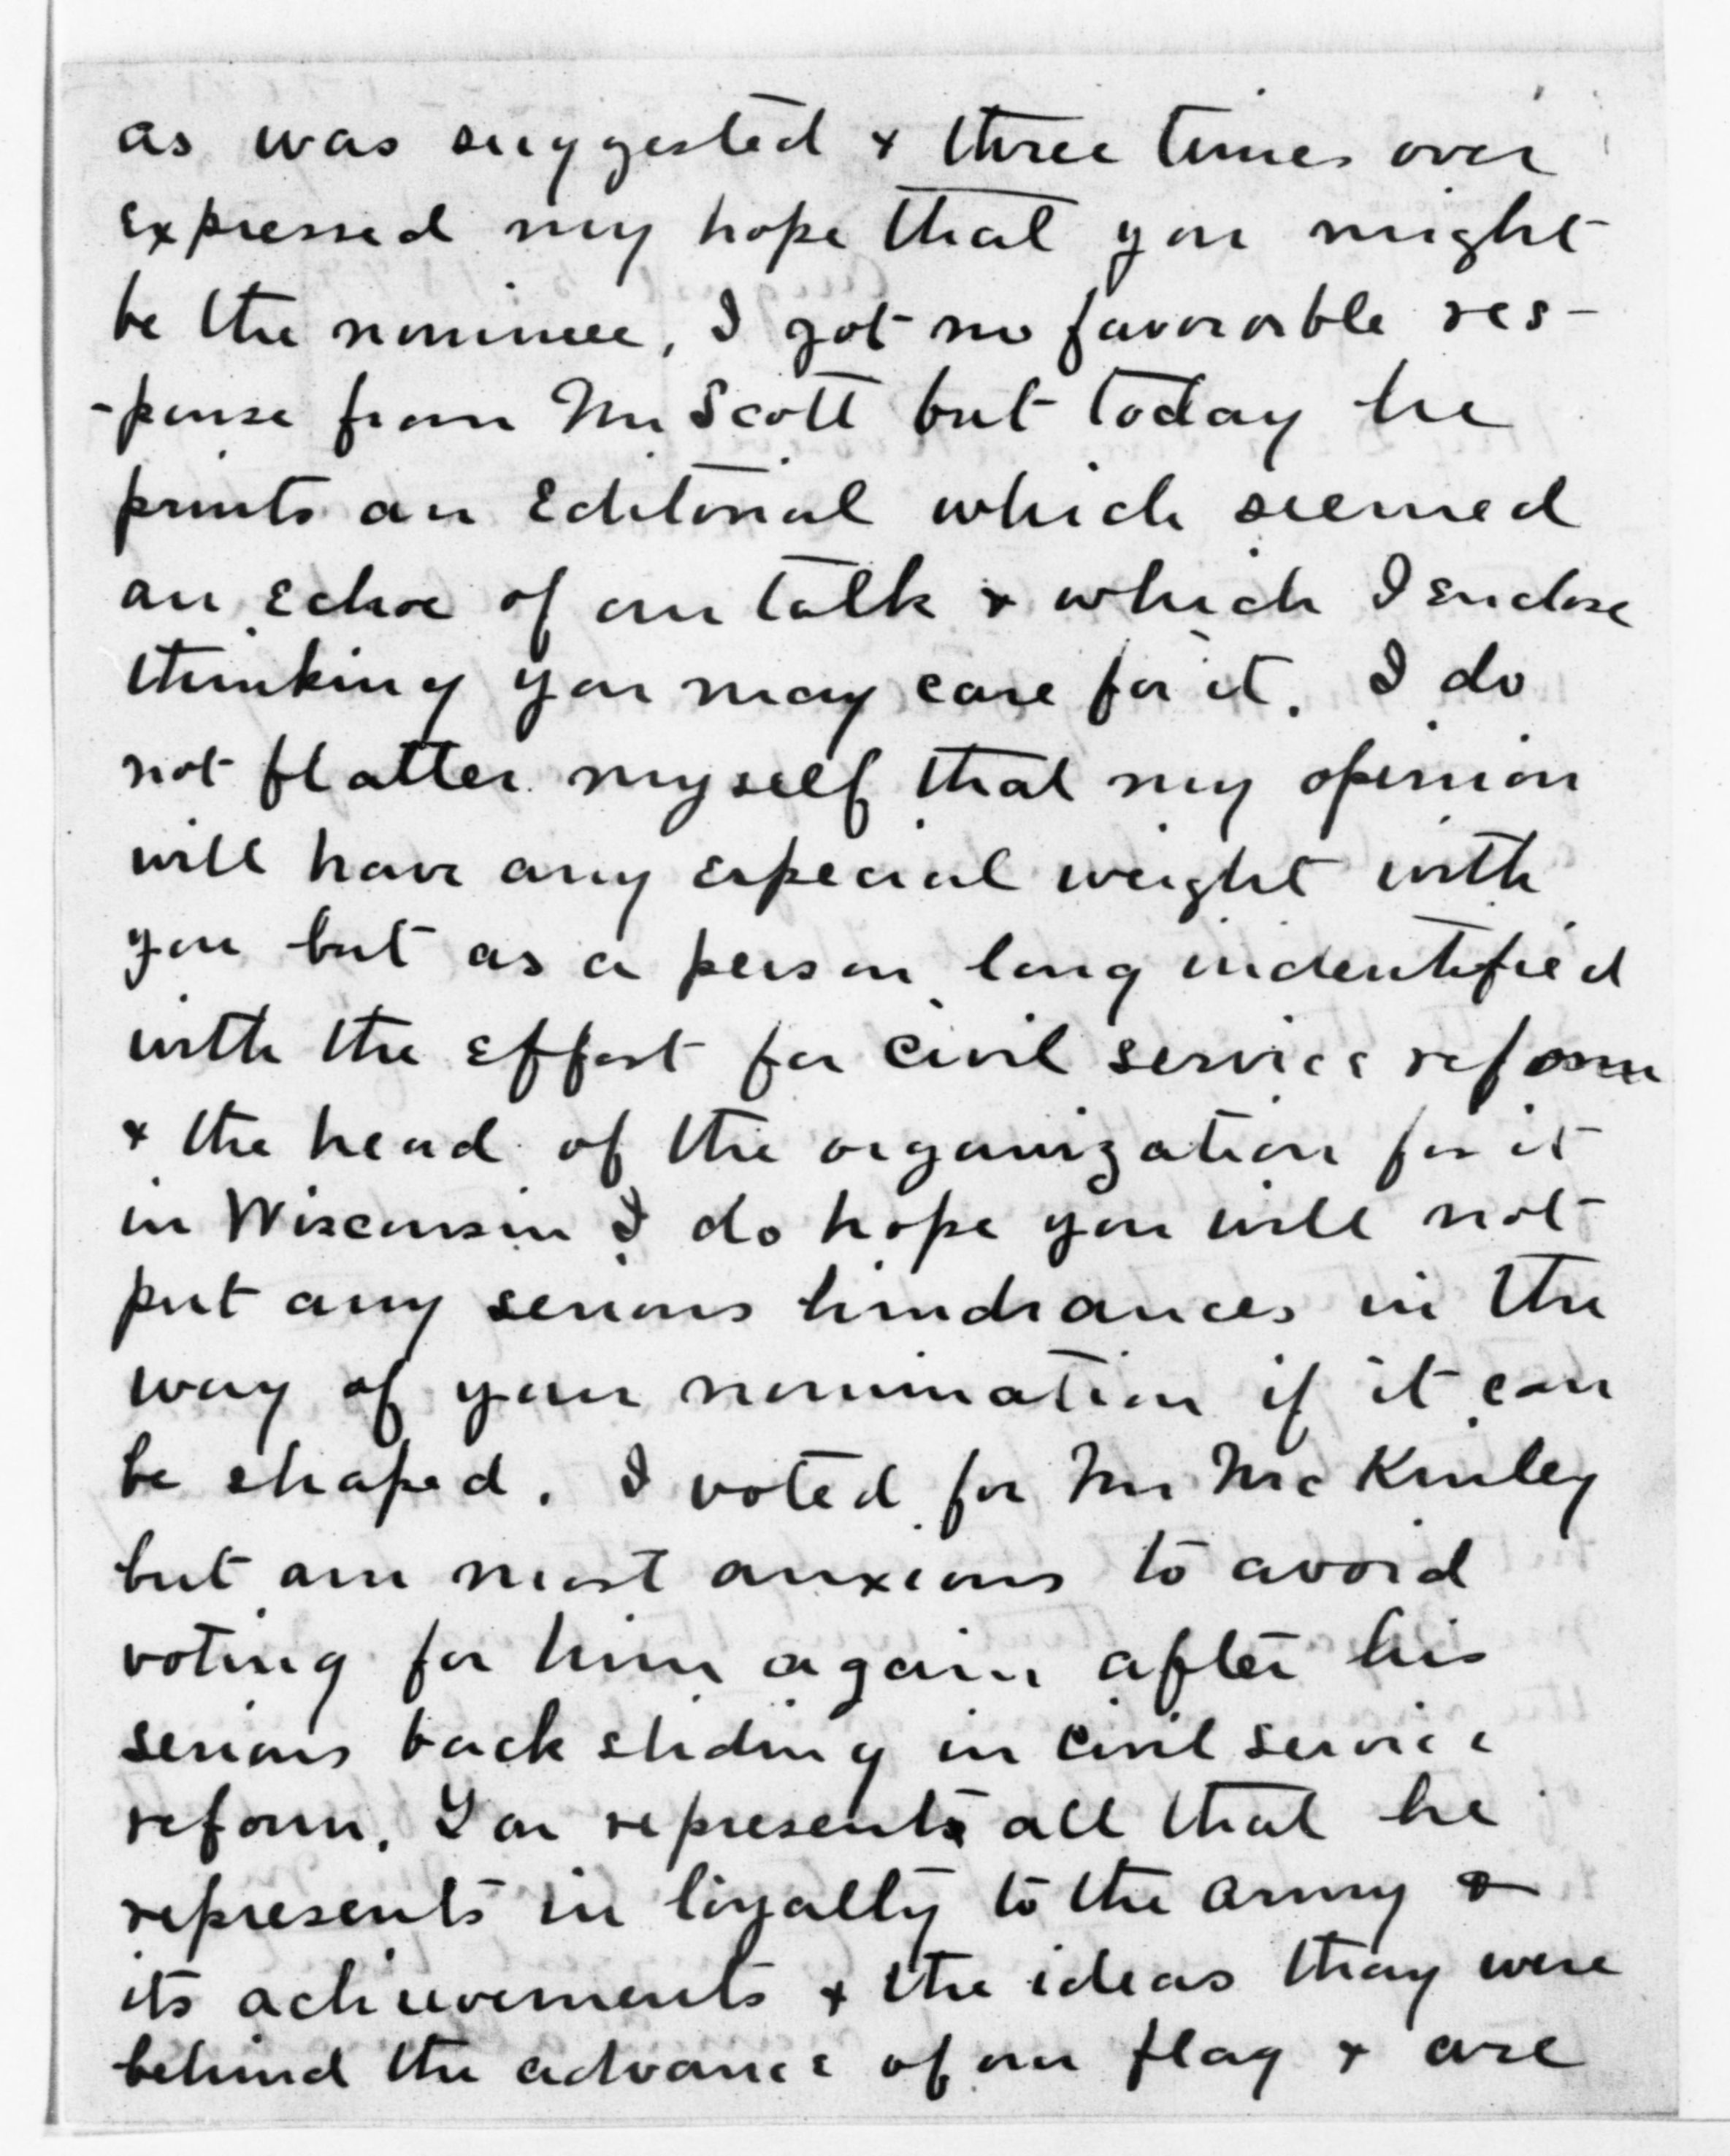 as was suggested & three times over
expressed my hope that you might
be the nominee, I got no favorable res-
-ponse from Mr Scott but today he
prints an Editorial which seemed
an Echoe of our talk & which I enclose
thinking you may care for it. I do
not flatter myself that my opinion
will have any especial weight with
you but as a person long indentified
with the Effort for civil service reform
& the head of the organization for it
in Wisconsin I do hope you will not
put any serious hindrances in the
way of your nomination if it can
be shaped. I voted for Mr McKinley
but am most anxious to avoid
voting for him again after his
serious back sliding in civil service
reform. You represents all that he
represents in loyalty to the army &
its achievements & the ideas thay were
behind the advance of our flag & are